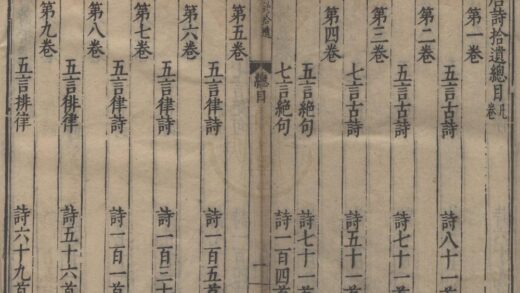 唐詩拾遺總目 凡 卷
第一卷
五言古詩 詩八十一首
第二卷
五言古詩 詩七十一首
第三卷
七言古詩 詩五十一首
第四卷
五言絶句 詩七十一首
七言絶句 詩一百四首
詩拾遺 總目 一
第五卷
五言律詩 詩一百五首
第六卷
五言律詩 詩一百三十
第七卷
五言律詩 詩一百一首
第八卷
五言排律 詩五十六首
第九卷
五言排律 詩六十九首